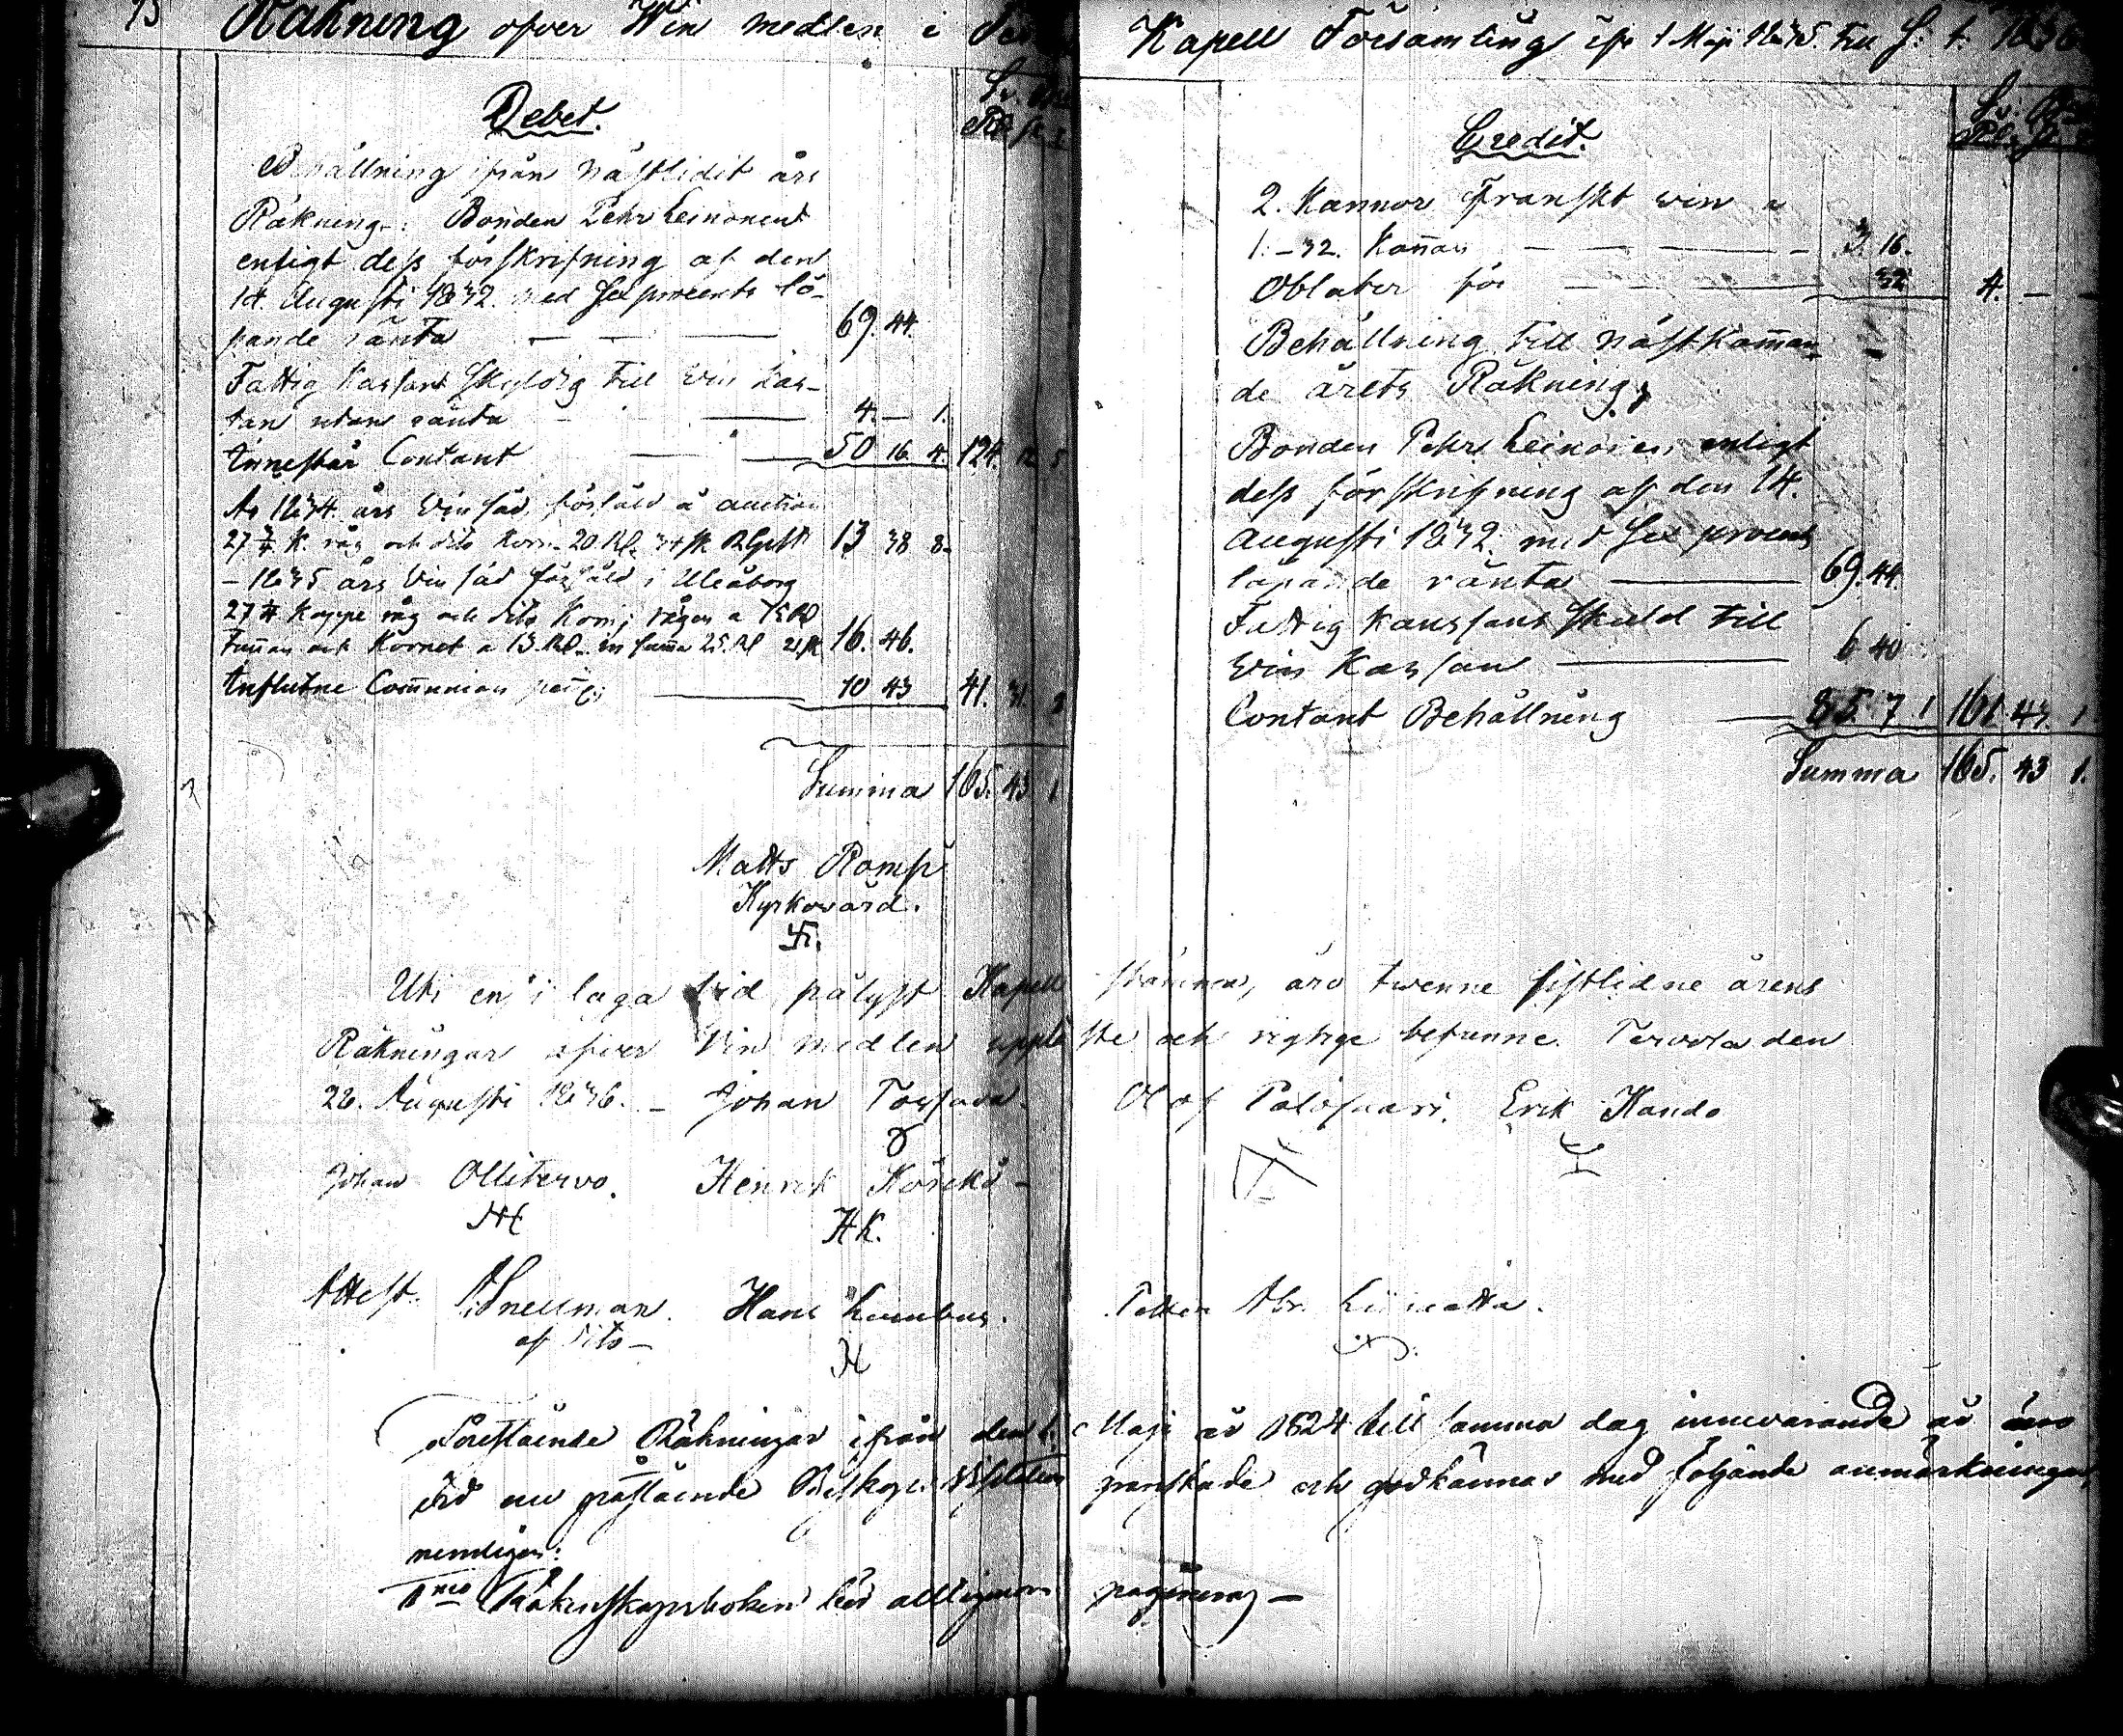 Räkning öfver Win medlen i
Kapell Församling ifr 1 Maji 1835. till S: t. 1836
Debet.
Behållning ifrån nästlidit års
Räkning: Bonden Pehr Leinonens
enligt dess förskrifning af den
14. Augusti 1832. med Sex procents lö-
pande ränta 69. 44.
Fattig Kassans skyldig till Vin Kas-
san utan ränta 4. — 1.
Innestår Contant 50 16. 4. 124. 12 5
Af 1834 års Vin säd, försåld å auction
27 3/4 K. råg och dito Korn 20 Rd. 34 sk RGsS 13 38 8.
- 1835 års Vin säd försåld i Uleåborg
27 3/4 Kappe råg och dito Korn, rågen a 15 Rd
Tunnan och Kornet a 13 Rd. in summa 25. Rd 21 sk 16. 46.
Influtne Communion peng: 10 43 41. 31. 2
Summa 165. 43 1
Matts Romp
Kyrkovärd.
Credit.
2. Kannor Franskt win a
1. - 32. Kannan 3. 16.
Oblater för 32 4. — —
Behållning till nästkomman-
de årets Räkning,
Bonden Pehr Leinonen enligt
dess förskrifning af den 14.
Augusti 1832. med Sex procents
löpande ränta 69. 44.
Fattig Kassans skuld till
Vin Kassan 6 40
Contant Behållning 85. 7 1 161 43. 1.
Summa 165. 43 1.
Uti en i laga tid pålyst Kapell stämma, äro twenne sistlidne årens
Räkningar öfver Vin medlen uppläste och rigtige befunne. Tervola den
28. Augusti 1836. - Johan Olof Palosaari. Erik Kando
Johan Ollitervo. Henrik
HK.
Attest. Snellman. Hans
af dito -
Petter Abr.
Förestående Räkningar ifrån den 1. Maji år 1824 till samma dag innevarande år äro
vid nu påstående Biskops Visitation granskade och godkännas med följande anmärkningar,
nemligen:
1mo Räkenskapsboken bör paginering —